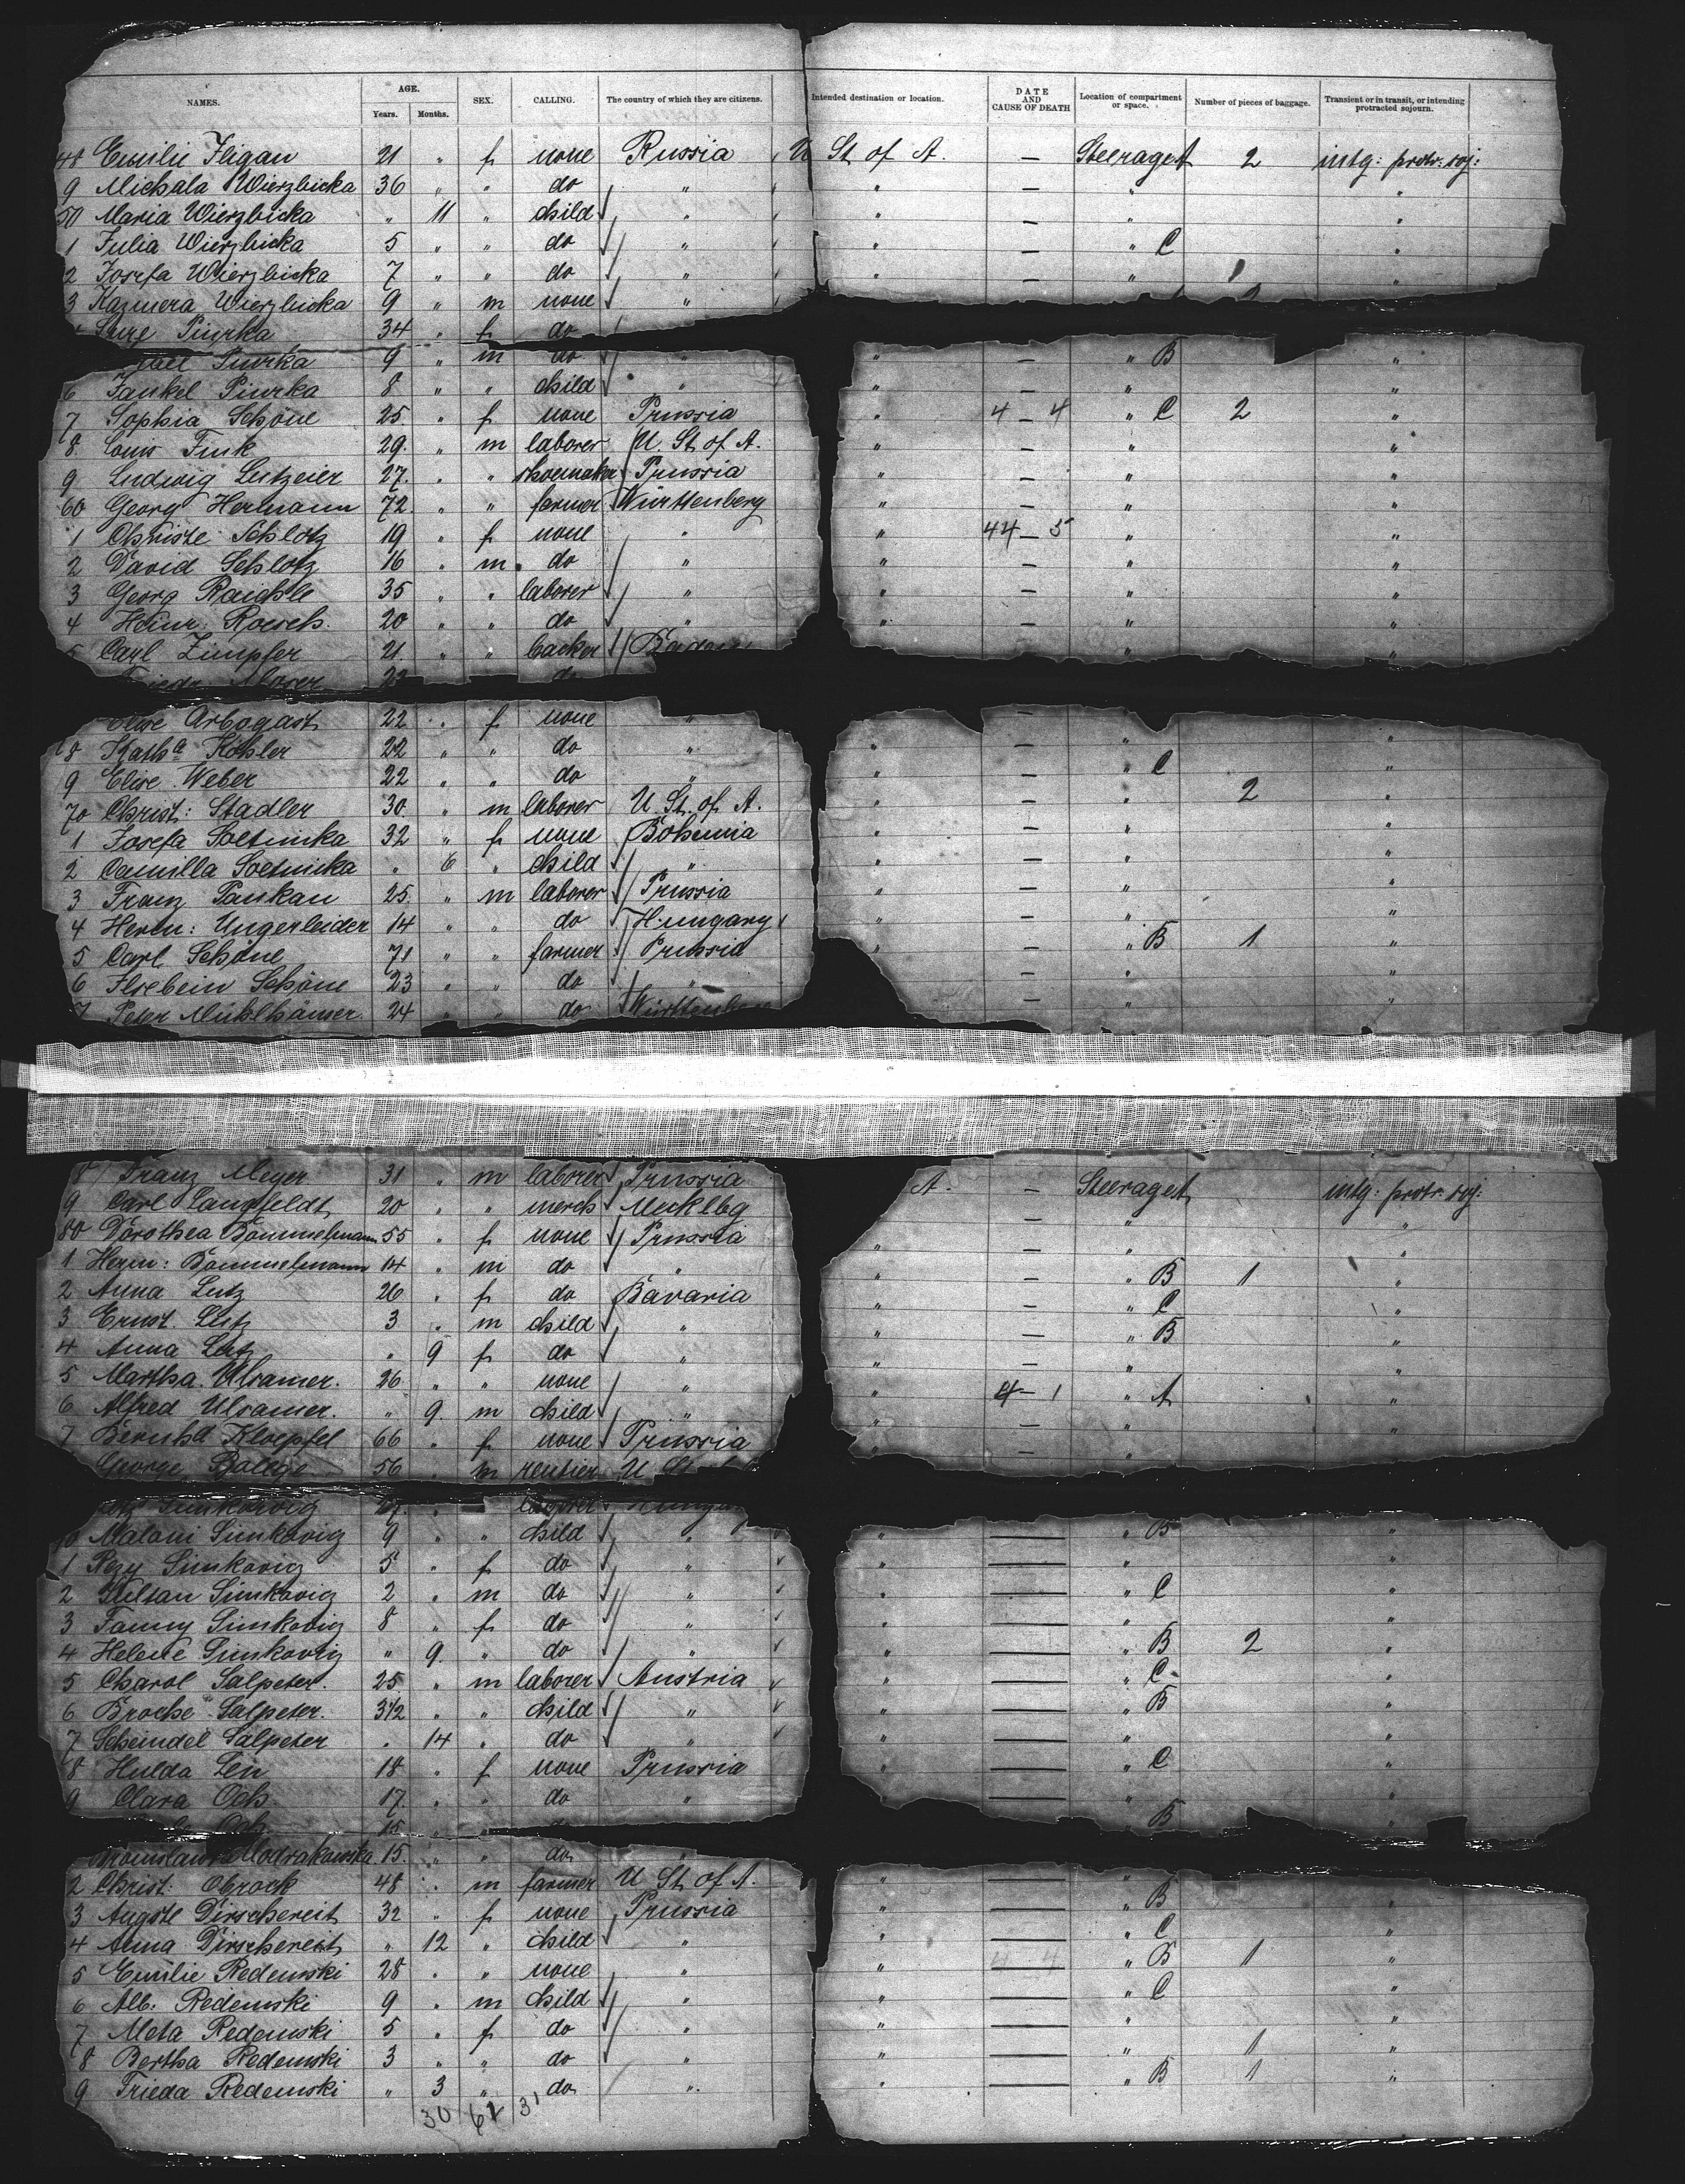 NAMES. AGE. Years. Months. SEX. CALLING. The country of which they are citizens. Intended destination or location. DATE AND CAUSE OF DEATH Location of compartment or space. Number of pieces of baggage. Transient or in transit, or intending protracted sojourn.
48 Emilie Fligan 21 " f none Russia U St of A. — Steerage A 2 intg: protr: soj:
9 Michala Wierzbicka 36 " " do " " — " "
50 Maria Wierzbicka " 11 " child " " — " "
1 Julia Wierzbicka 5 " " do " " — " C "
2 Josefa Wierzbicka 7 " " do " " — " 1 "
3 Kazmera Wierzbicka 9 " m none "
Piurka 34 " f do
Piurka 9 " m do " " — " B "
6 Jankel Piurka 8 " " child " " — " "
7 Sophia Schöne 25 " f none Prussia " 4 — 4 " C 2 "
8 Louis Fink 29 " m laborer U. St. of A. " — " "
9 Ludwig Lutzeier 27 " " shoemaker Prussia " — " "
60 Georg Hermann 72 " " farmer Württenberg " — " "
1 Christe Schlotz 19 " f none " " 44 — 5 " "
2 David Schlotz 16 " m do " " — " "
3 Georg Raichle 35 " " laborer " " — " "
4 Heinr: Roesch 20 " " do " " — " "
5 Carl Zimpfer 21 " " backer Baden — " "
Friedr: Moser 22 do
Elise Arbogast 22 " f none " —
68 Katha Köhler 22 " " do " " — " "
9 Elise Weber 22 " " do " " — " C "
70 Christ: Stadler 30 " m laborer U St. of A. " — " 2 "
1 Josefa Soetnicka 32 " f none Bohemia " — " "
2 Camilla Soetnicka " 6 " child " " — " "
3 Franz Pankau 25 " m laborer Prussia " — " "
4 Herm: Ungerleider 14 " " do Hungary " — " "
5 Carl Schöne 71 " " farmer Prussia " — " B 1 "
6 Ilsebein Schöne 23 " " do " — " "
7 Peter Mühlhäuser 24 " " do Württenberg — " "
8 Franz Meyer 31 " m laborer Prussia A. — Steerage A intg: protr: soj:
9 Carl Langfeldt 20 " " merch Mecklbg — " "
80 Dorothea Bömmelmann 55 " f none Prussia " — " "
1 Herm: Bömmelmann 14 " m do " " — " B 1 "
2 Anna Lutz 26 " f do Bavaria " — " C "
3 Ernst Lutz 3 " m child " " — " B "
4 Anna Lutz " 9 f do " " — " "
5 Martha Ulsamer. 26 " " none " " 4 — 1 " A "
6 Alfred Ulsamer. " 9 m child " " — " "
7 Bernhd Kloepfel 66 " f none Prussia " — " "
George 56 " m rentier U St
Simkovig 27 " laborer Hungary
90 Malani Simkovig 9 " " child " " — " B "
1 Rezy Simkovig 5 " f do " " — " "
2 Simkovig 2 " m do " " — " C "
3 Fanny Simkovig 8 " f do " " — " "
4 Helene Simkovig " 9 " do " " — " B 2 "
5 Charol Salpeter. 25 " m laborer Austria " — " C "
6 Broche Salpeter. 3 1/2 " " child " " — " B "
7 Scheindel Salpeter " 14 " do " " — " "
8 Hulda Zen 18 " f none Prussia " — " C "
9 Clara Och 17 " " do " " — " "
Och 15 " B "
Modrakowska 15 " " do "
2 Christ: Obrock 48 " m farmer U St of A. " — " "
3 Auguste Dirschereit 32 " f none Prussia " — " B "
4 Anna Dirschereit " 12 " child " " — " C "
5 Emilie Redemski 28 " " none " " 4 — 4 " B 1 "
6 Alb: Redemski 9 " m child " " — " C "
7 Meta Redemski 5 " f do " " — " "
8 Bertha Redemski 3 " " do " " — " 1 "
9 Frieda Redemski " 3 " do " " — " B 1 "
30 61 31